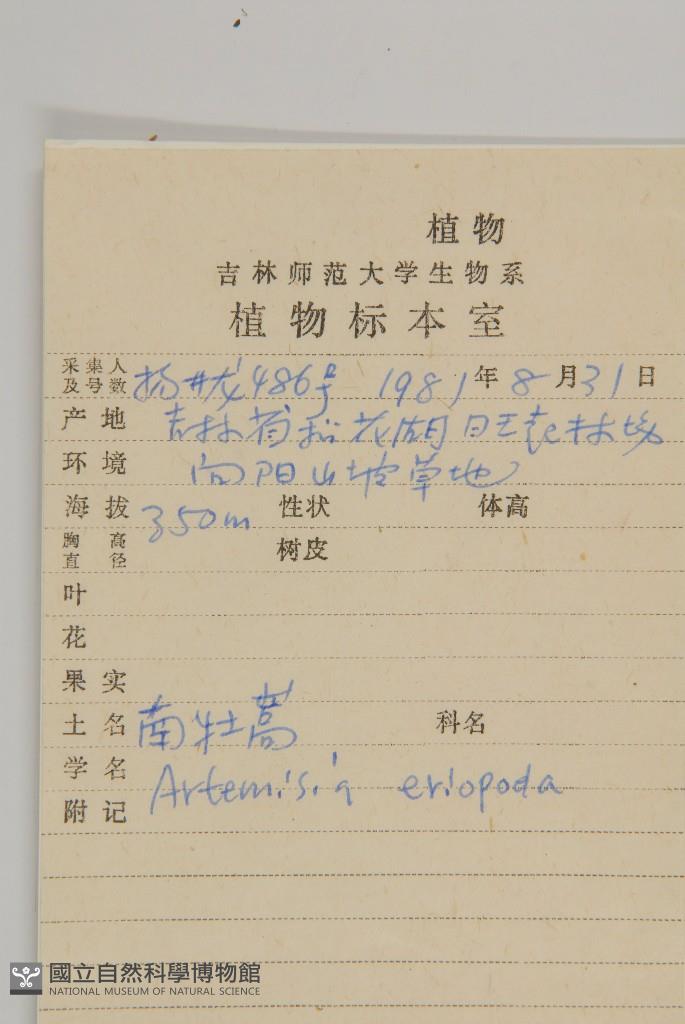 植物
吉林师范大学生物系
植物标本室
采集人及号数 486号 1981年8月31日
产地 吉林省松花湖林场
环境 向阳山坡草地
海拔 350m 性状 体高
胸高直径 树皮
叶
花
果实
土名 南牡蒿 科名
学名 Artemisia eriopoda
附记
國立自然科學博物館
NATIONAL MUSEUM OF NATURAL SCIENCE